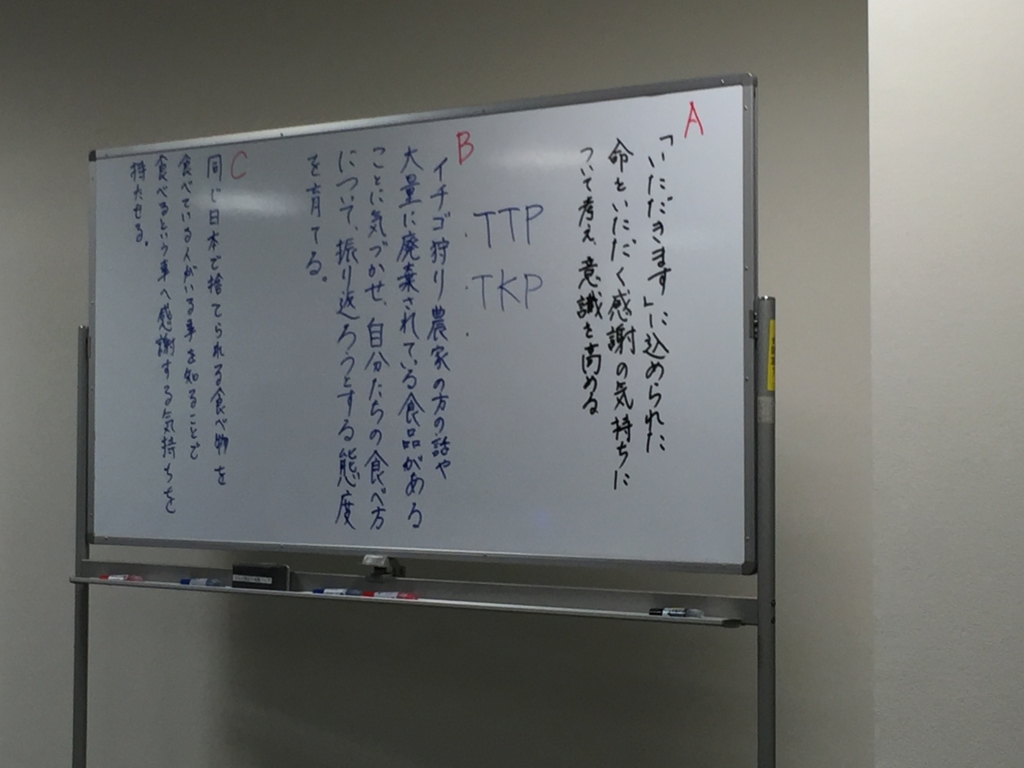 A
「いただきます」に込められた
命をいただく感謝の気持ちに
ついて考え、意識を高める
・TTP
・TKP
・
B
イチゴ狩り農家の方の話や
大量に廃棄されている食品がある
ことに気づかせ、自分たちの食べ方
について、振り返ろうとする態度
を育てる。
C
同じ日本で捨てられる食べ物を
食べている人がいる事を知ることで
食べるという事へ感謝する気持ちを
持たせる。